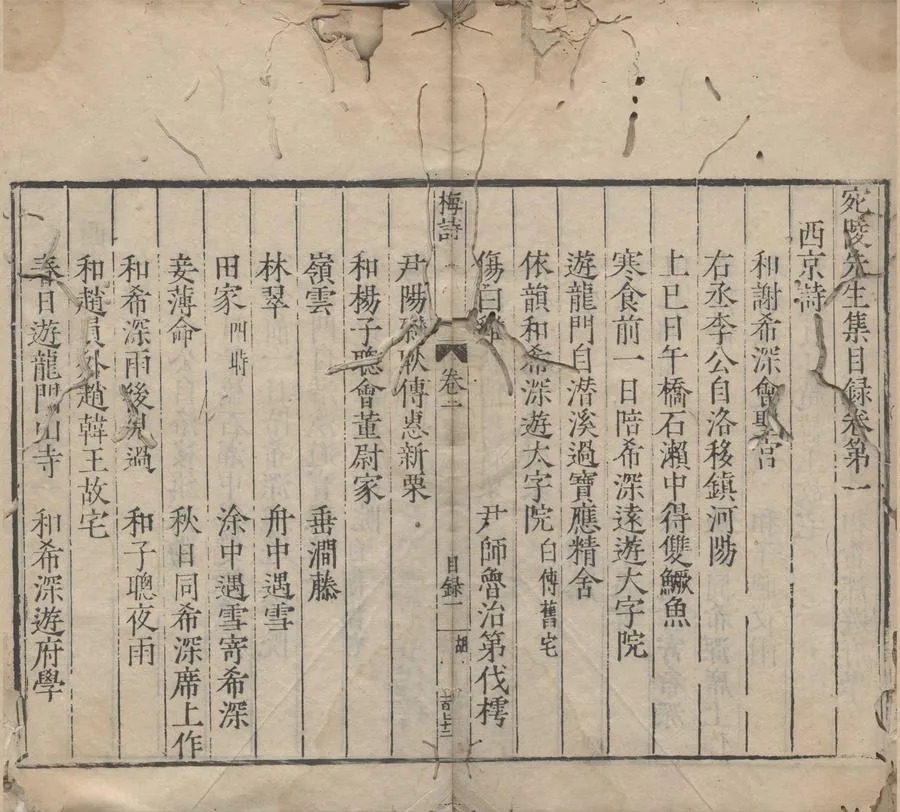 宛陵先生集目録卷第一
西京詩
和謝希深會聖宮
右丞李公自洛移鎮河陽
上巳日午橋石瀨中得雙鱖魚
寒食前一日陪希深遠遊大字院
遊龍門自潛溪過寶應精舍
依韻和希深遊大字院 白傅舊宅
傷白雞 尹師魯治第伐樗
梅詩
卷一
目録一
胡
尹陽尉耿傳惠新栗
和楊子聰會董尉家
嶺雲 垂澗藤
林翠 舟中遇雪
田家 四時 涂中遇雪寄希深
妾薄命 秋日同希深席上作
和希深雨後見過 和子聰夜雨
和趙員外趙韓王故宅
春日遊龍門山寺 和希深遊府學